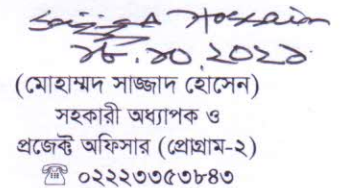 Sajjad Hossain
২৮.১০.২০২১
(মোহাম্মদ সাজ্জাদ হোসেন)
সহকারী অধ্যাপক ও
প্রজেক্ট অফিসার (প্রোগ্রাম-২)
☎ ০২২২৩৩৫৩৮৪৩